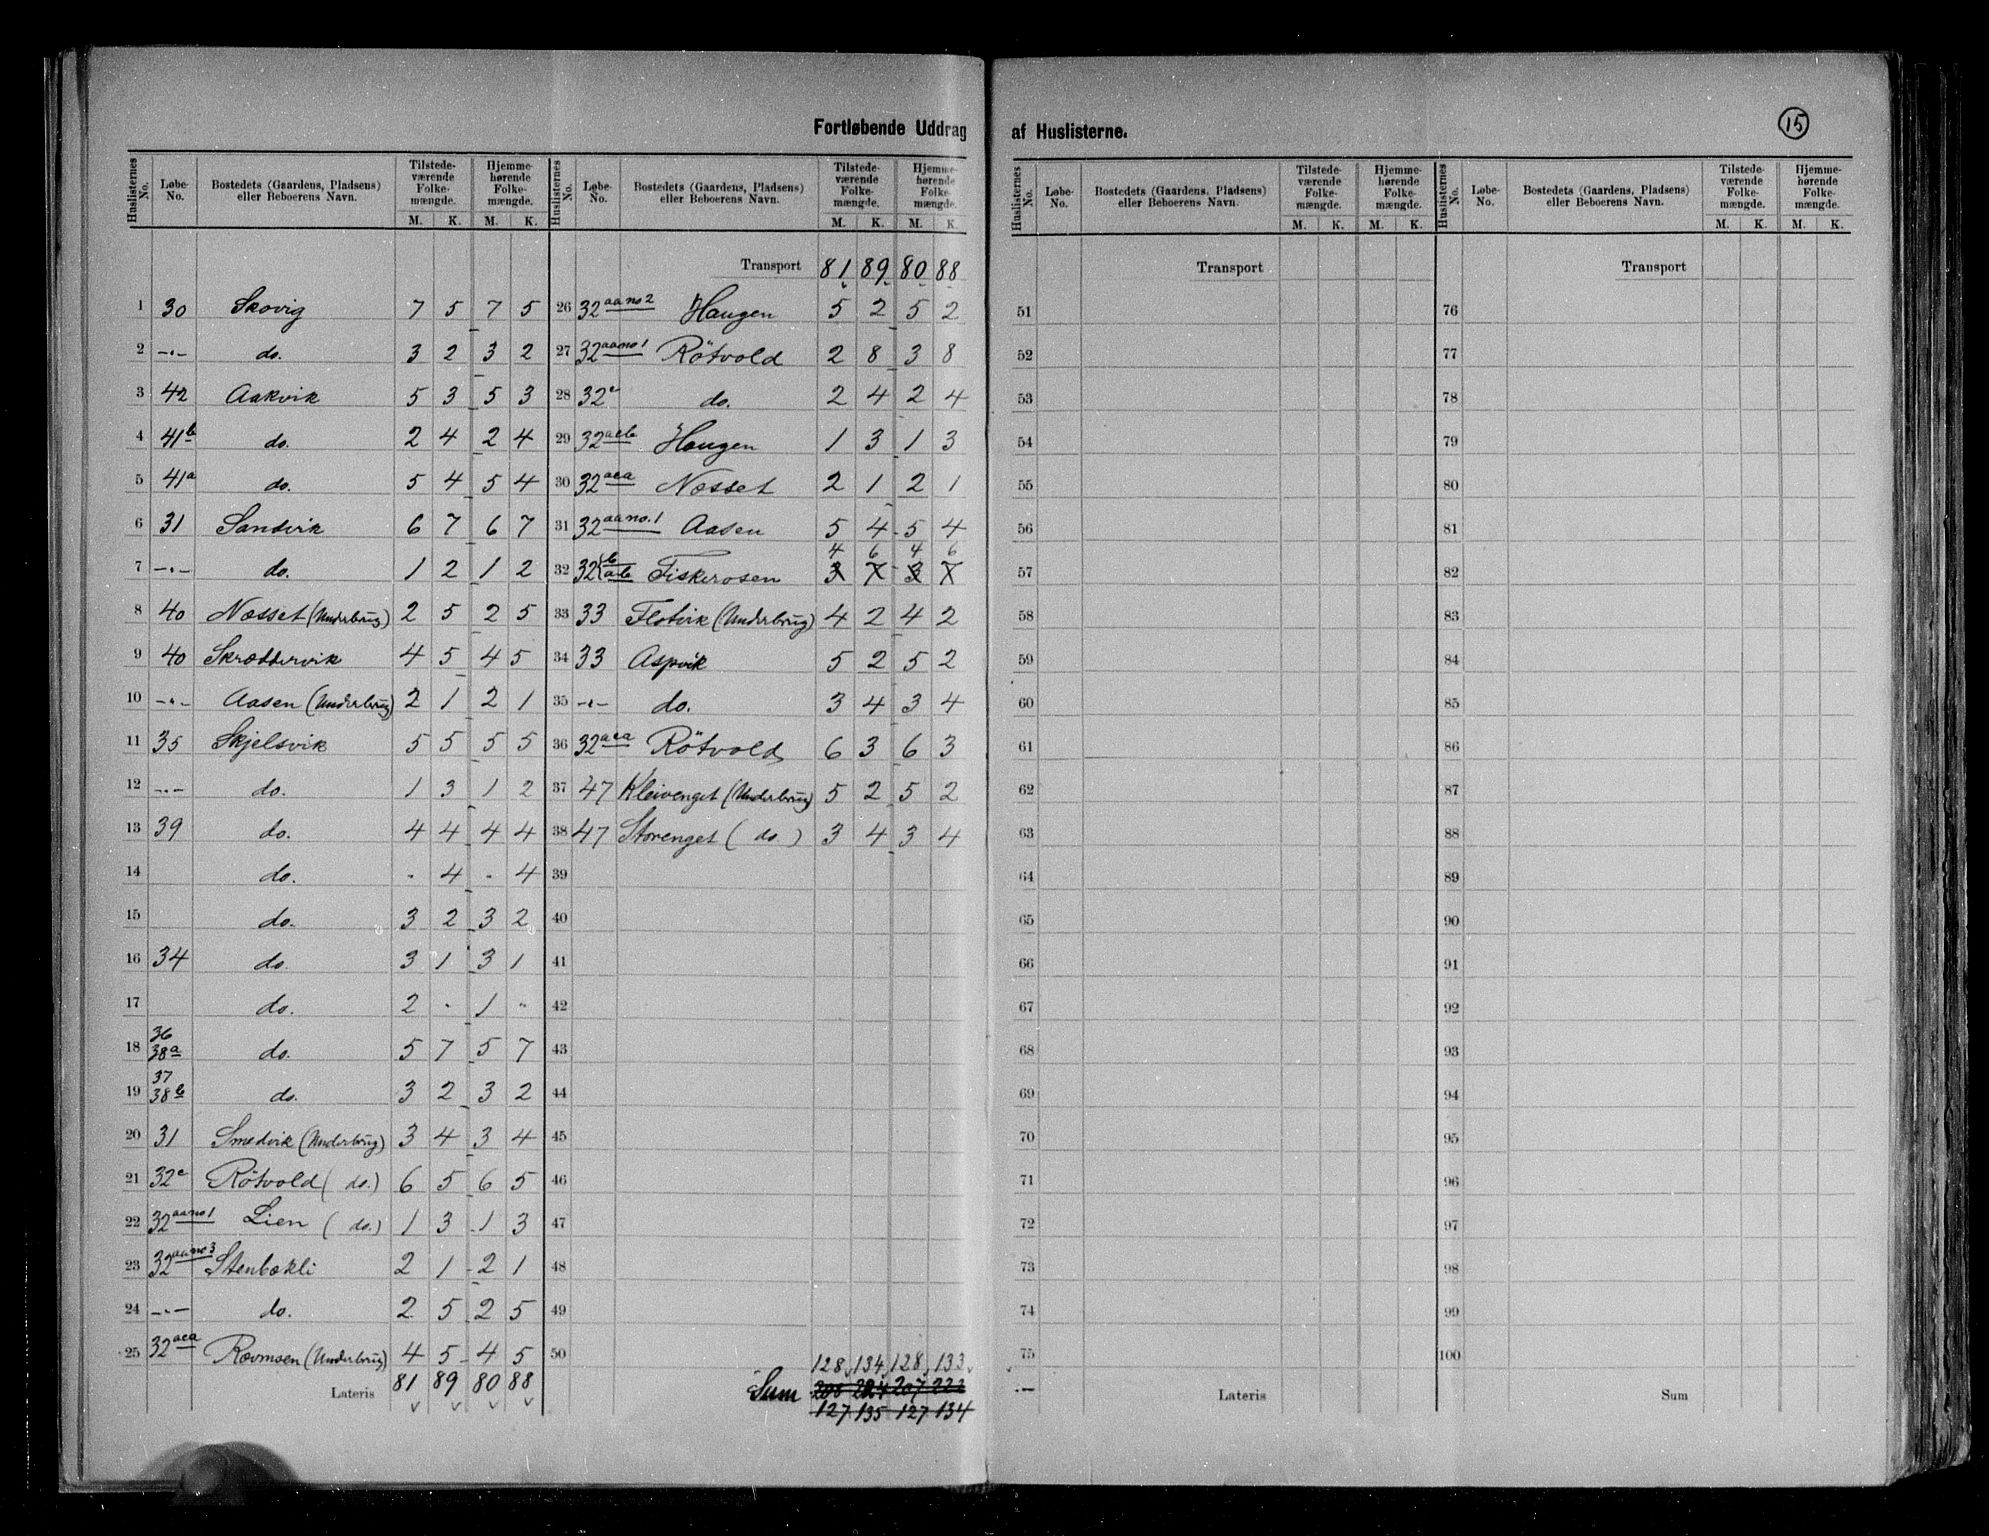 Fortløbende Uddrag af Huslisterne.
15
Huslisternes No. Løbe-No. Bostedets (Gaardens, Pladsens) eller Beboerens Navn. Tilstedeværende Folkemængde. M. K. Hjemmehørende Folkemængde. M. K.
1 30 Skovig 7 5 7 5
2 -"- do. 3 2 3 2
3 42 Aakvik 5 3 5 3
4 41b do. 2 4 2 4
5 41a do. 5 4 5 4
6 31 Sandvik 6 7 6 7
7 -"- do. 1 2 1 2
8 40 Næsset (Underbrug) 2 5 2 5
9 40 Skræddervik 4 5 4 5
10 -"- Aasen (Underbrug) 2 1 2 1
11 35 Skjelsvik 5 5 5 5
12 -"- do. 1 3 1 2
13 39 do. 4 4 4 4
14 do. - 4 - 4
15 do. 3 2 3 2
16 34 do. 3 1 3 1
17 do. 2 - 1 -
18 36 38a do. 5 7 5 7
19 37 38b do. 3 2 3 2
20 31 Smedvik (Underbrug) 3 4 3 4
21 32c Rötvold (do.) 6 5 6 5
22 32aano1 Lien (do.) 1 3 1 3
23 32aano3 Stenbækli 2 1 2 1
24 -"- do. 2 5 2 5
25 32aca (Underbrug) 4 5 4 5
Lateris 81 89 80 88
Huslisternes No. Løbe-No. Bostedets (Gaardens, Pladsens) eller Beboerens Navn. Tilstedeværende Folkemængde. M. K. Hjemmehørende Folkemængde. M. K.
Transport 81 89 80 88
26 32aano2 Haugen 5 2 5 2
27 32aano1 Rötvold 2 8 3 8
28 32c do. 2 4 2 4
29 32acb Haugen 1 3 1 3
30 32aca Næsset 2 1 2 1
31 32aano.1 Aasen 5 4 5 4
4 6 4 6
32 32{b ab Fiskerosen 3 7 3 7
33 33 Flotvik (Underbrug) 4 2 4 2
34 33 Aspvik 5 2 5 2
35 -"- do. 3 4 3 4
36 32aca Rötvold 6 3 6 3
37 47 Kleivenget (Underbrug) 5 2 5 2
38 47 Storenget (do) 3 4 3 4
39
40
41
42
43
44
45
46
47
48
49
50
128 134 128 133
Sum 208 224 207 222
127 135 127 134
Huslisternes No. Løbe-No. Bostedets (Gaardens, Pladsens) eller Beboerens Navn. Tilstedeværende Folkemængde. M. K. Hjemmehørende Folkemængde. M. K.
Transport
51
52
53
54
55
56
57
58
59
60
61
62
63
64
65
66
67
68
69
70
71
72
73
74
75
Lateris
Huslisternes No. Løbe-No. Bostedets (Gaardens, Pladsens) eller Beboerens Navn. Tilstedeværende Folkemængde. M. K. Hjemmehørende Folkemængde. M. K.
Transport
76
77
78
79
80
81
82
83
84
85
86
87
88
89
90
91
92
93
94
95
96
97
98
99
100
Sum